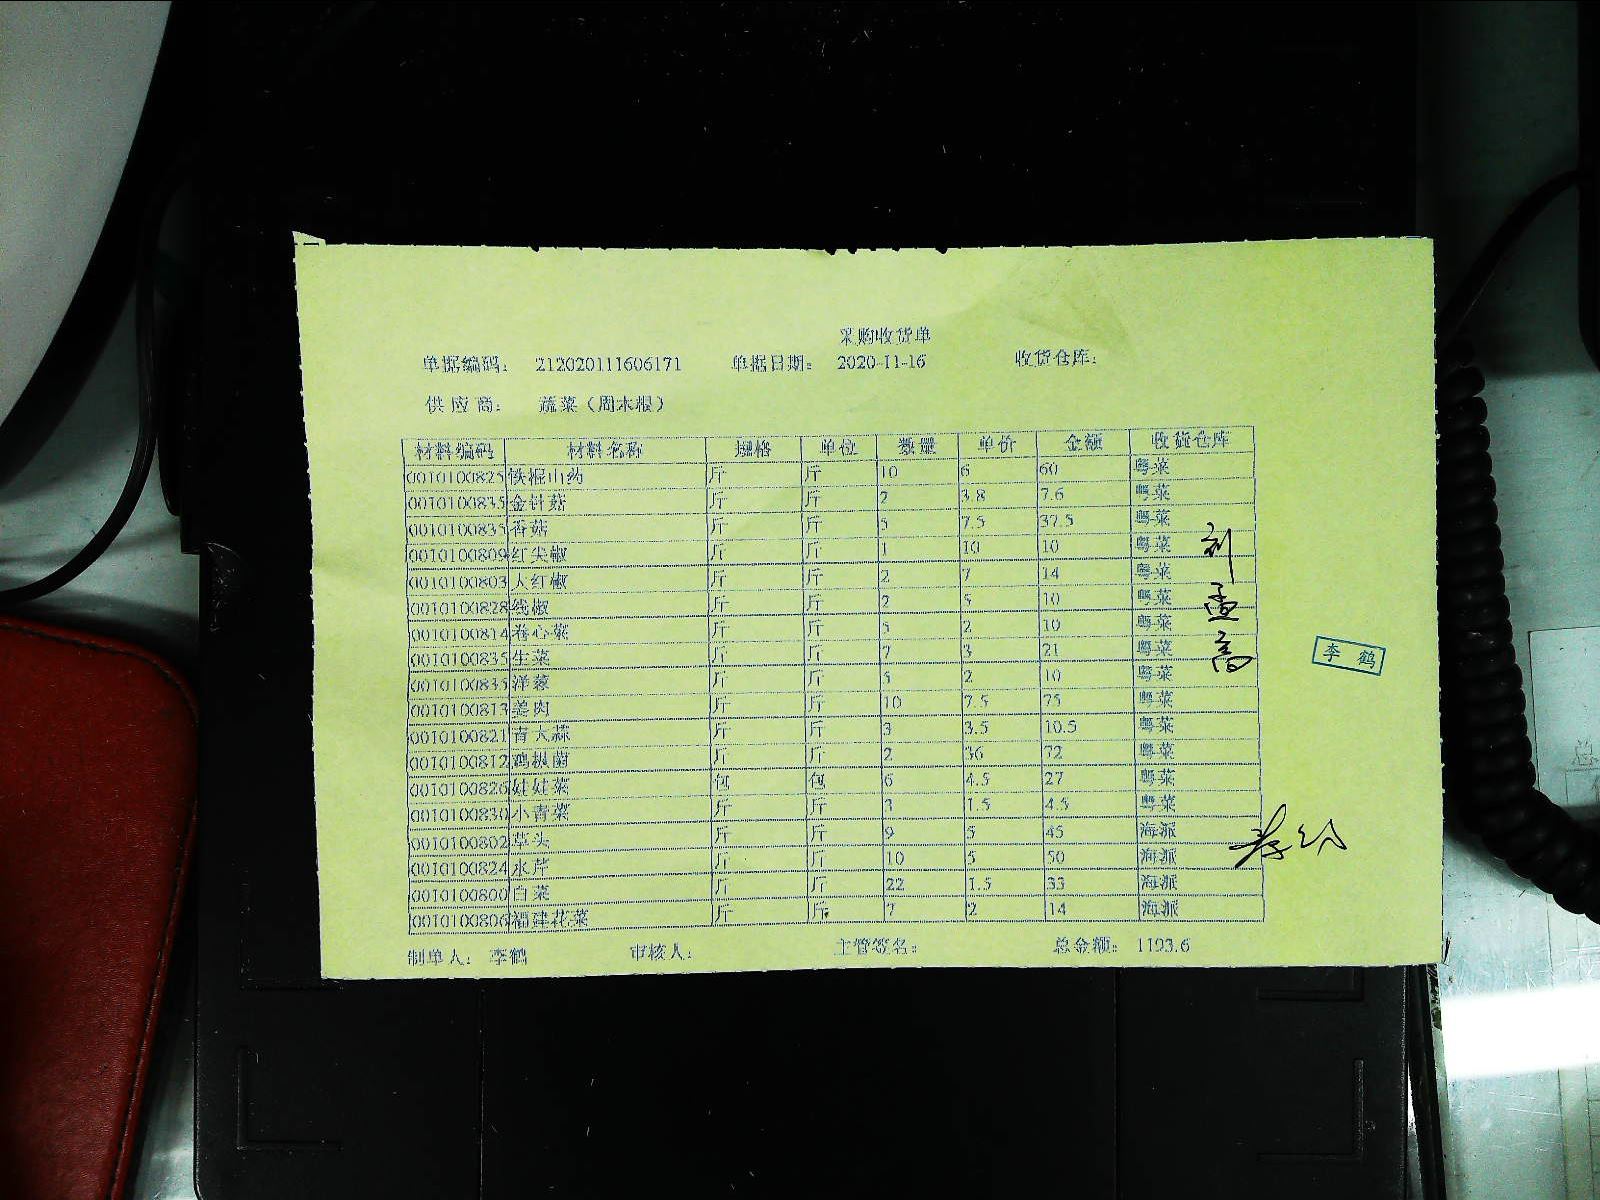 采购收货单
单据编码： 212020111606171 单据日期： 2020-11-16 收货仓库：
供应商： 蔬菜（周木根）
材料编码 材料名称 规格 单位 数量 单价 金额 收货仓库
0010100825 铁棍山药 斤 斤 10 6 60 粤菜
0010100835 金针菇 斤 斤 2 3.8 7.6 粤菜
0010100835 香菇 斤 斤 5 7.5 37.5 粤菜
0010100809 红尖椒 斤 斤 1 10 10 粤菜
0010100803 大红椒 斤 斤 2 7 14 粤菜
0010100828 线椒 斤 斤 2 5 10 粤菜
0010100814 卷心菜 斤 斤 5 2 10 粤菜
0010100835 生菜 斤 斤 7 3 21 粤菜
0010100835 洋葱 斤 斤 5 2 10 粤菜
0010100813 姜肉 斤 斤 10 7.5 75 粤菜
0010100821 青大蒜 斤 斤 3 3.5 10.5 粤菜
0010100812 鸡枞菌 斤 斤 2 36 72 粤菜
0010100826 娃娃菜 包 包 6 4.5 27 粤菜
0010100830 小青菜 斤 斤 3 1.5 4.5 粤菜
0010100802 草头 斤 斤 9 5 45 海派
0010100824 水芹 斤 斤 10 5 50 海派
0010100800 白菜 斤 斤 22 1.5 33 海派
0010100806 福建花菜 斤 斤 7 2 14 海派
制单人： 李鹤 审核人： 主管签名： 总金额： 1193.6
刘孟高
李鹤